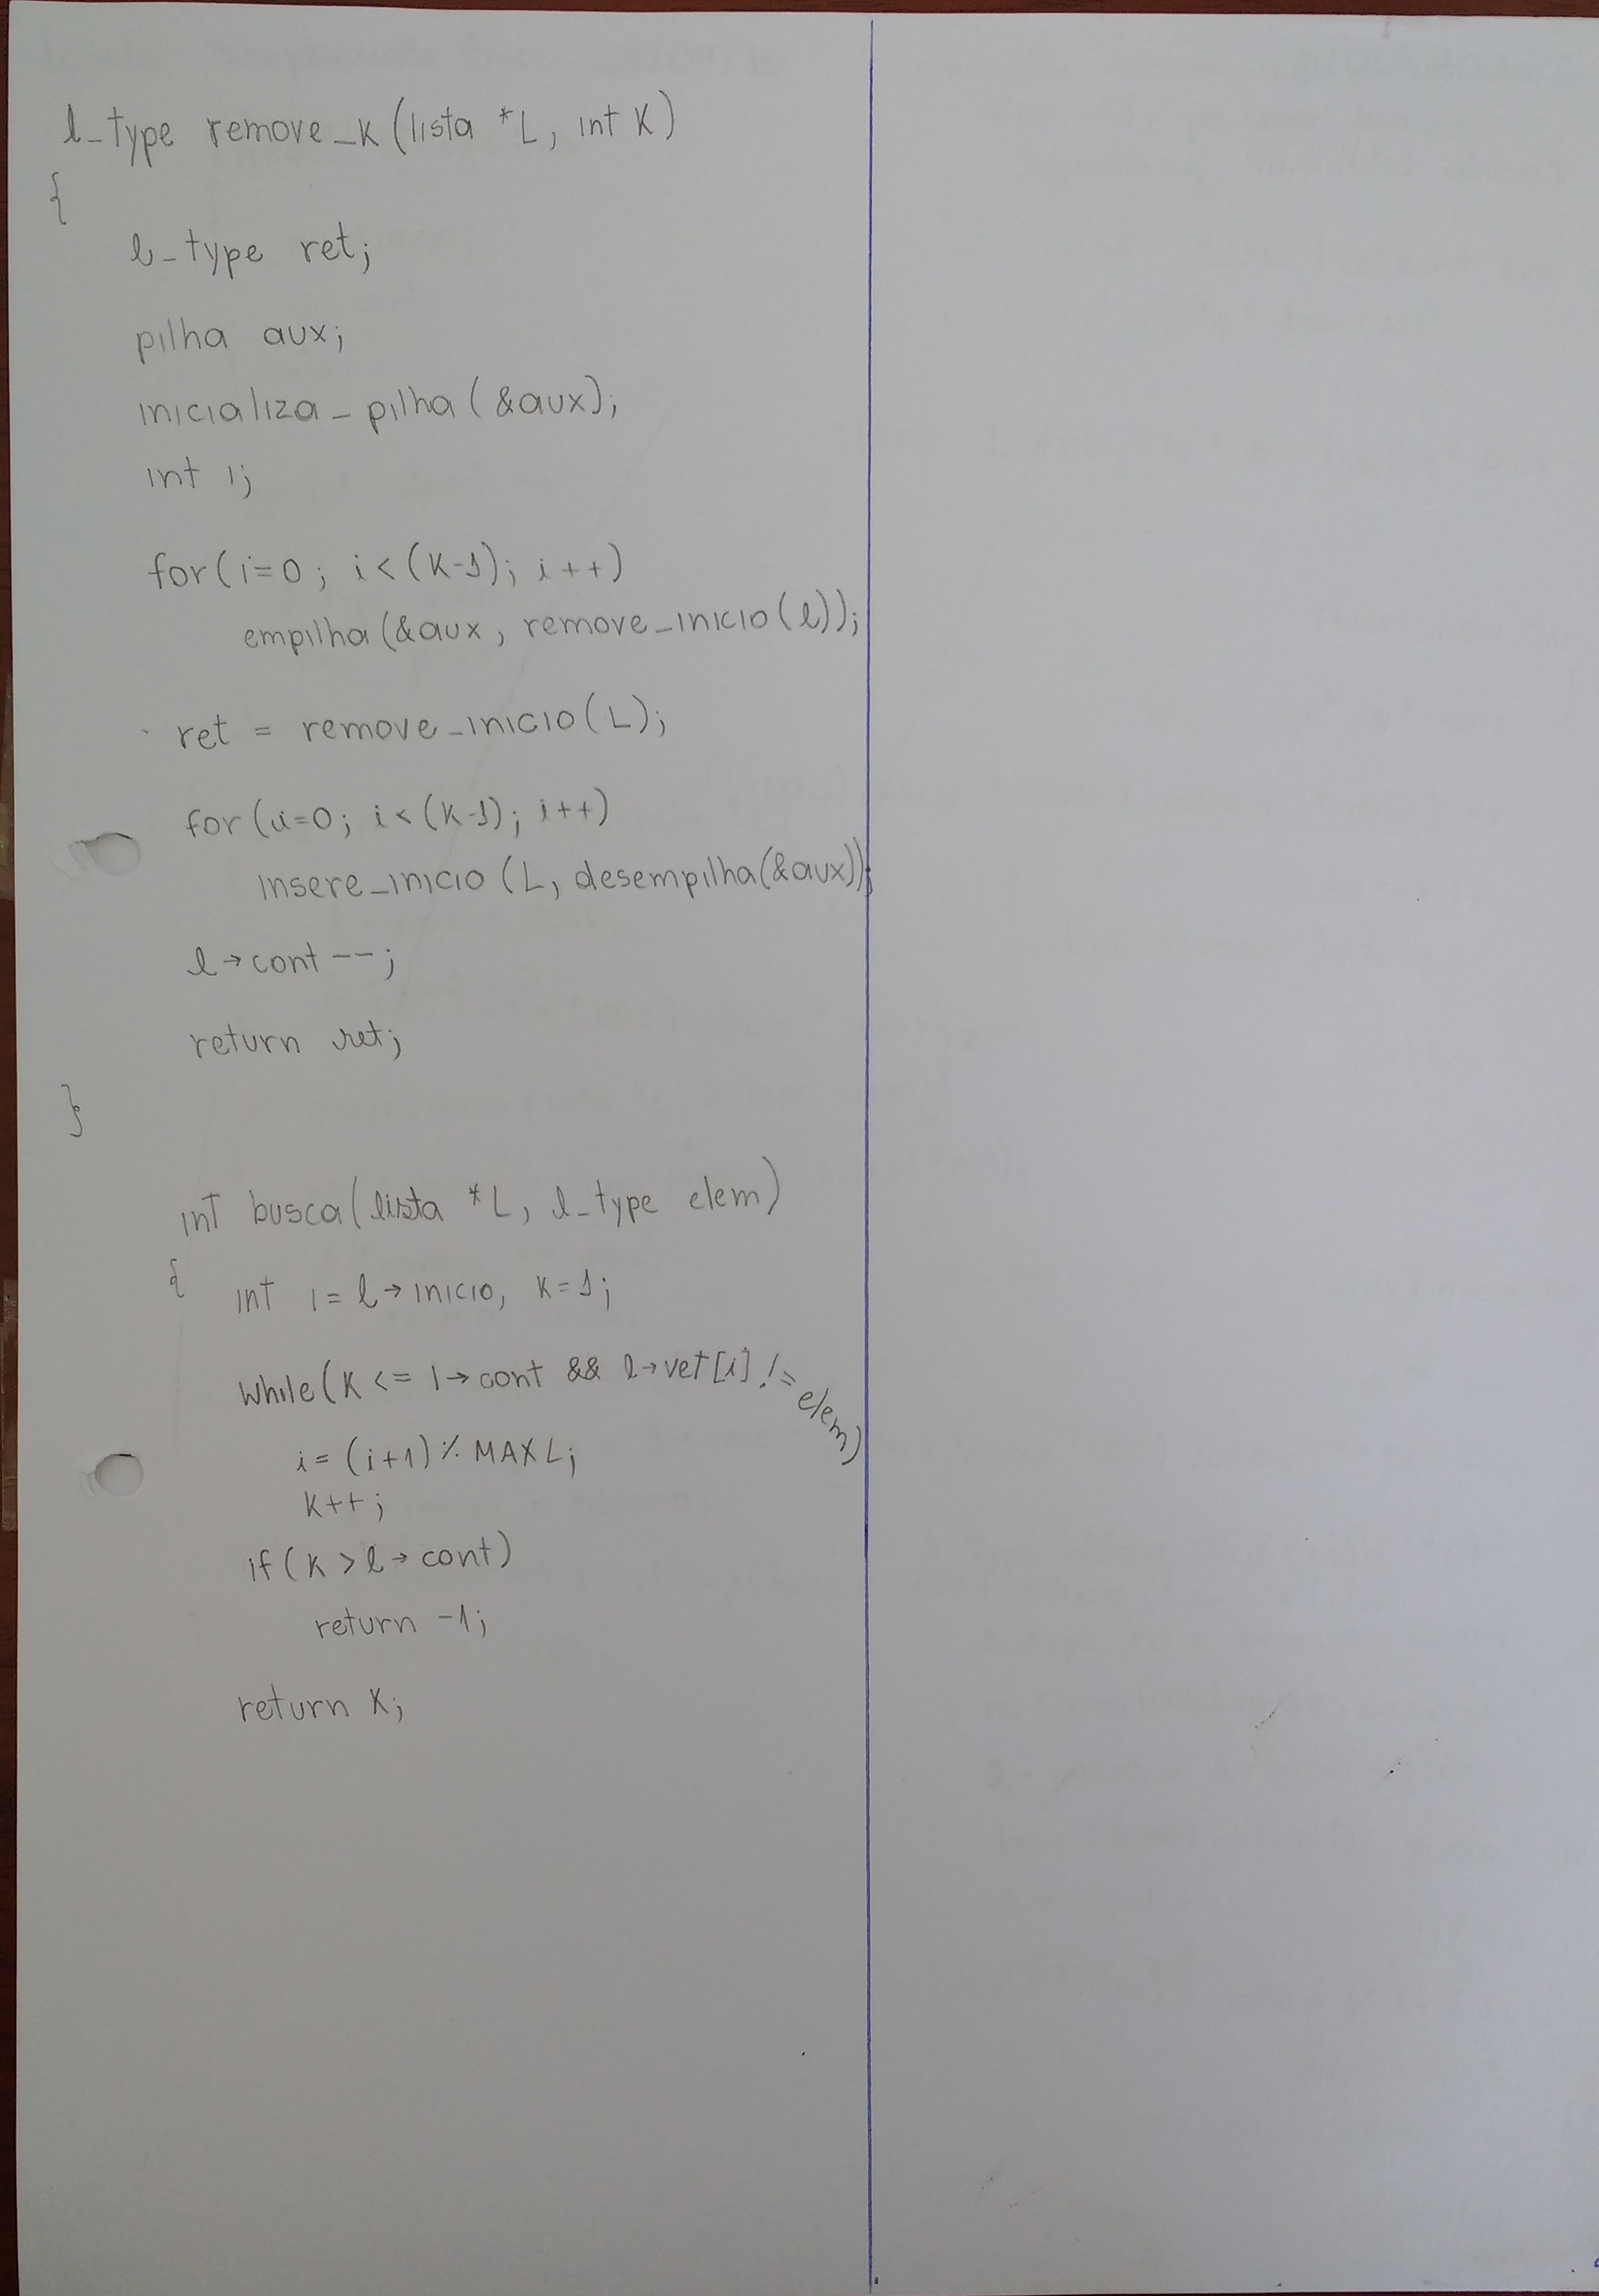 l_type remove_K (lista *L, int K)
{
l_type ret;
pilha aux;
inicializa_pilha (&aux);
int i;
for (i=0; i<(K-1); i++)
empilha (&aux, remove_inicio (l));
ret = remove_inicio (L);
for (i=0; i<(K-1); i++)
insere_inicio (L, desempilha (&aux));
l→cont--;
return ret;
}
int busca (lista *L, l_type elem)
{ int i = l→inicio, K=1;
While (K <= l→cont && l→vet[i] != elem)
i = (i+1) % MAXL;
K++;
if (K > l→cont)
return -1;
return K;